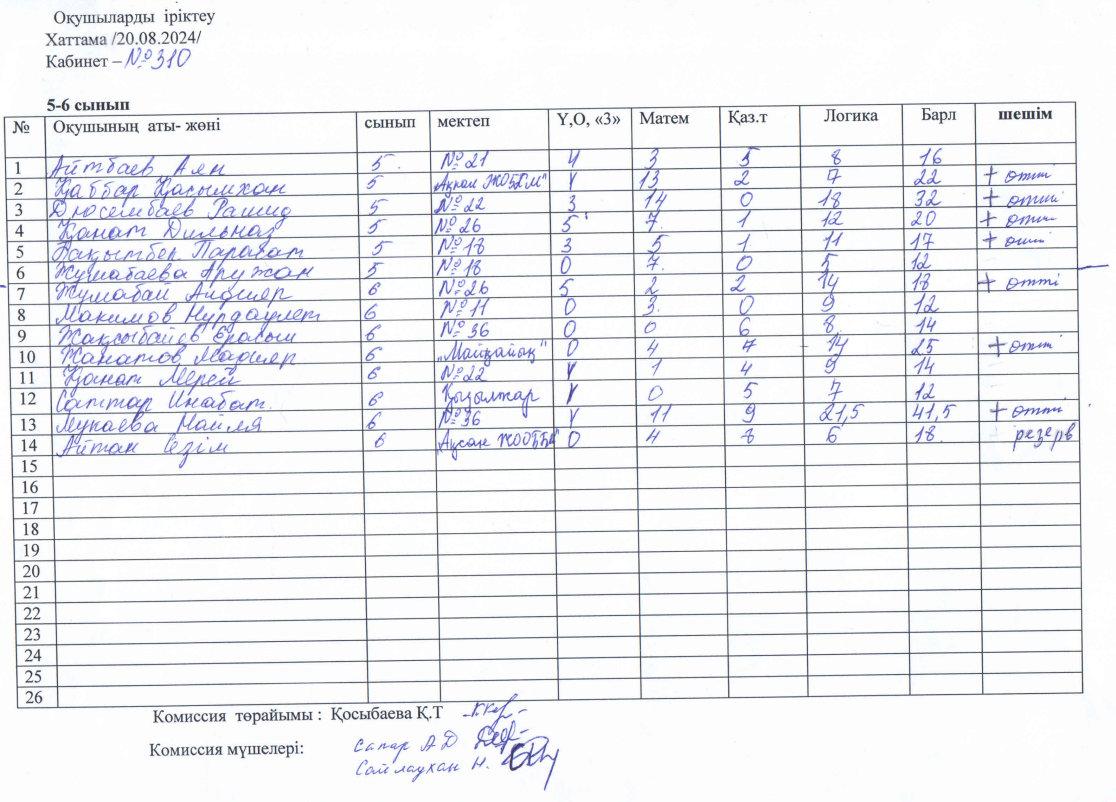 Оқушыларды іріктеу
Хаттама /20.08.2024/
Кабинет – №310
5-6 сынып
№ Оқушының аты- жөні сынып мектеп Ү,О, «3» Матем Қаз.т Логика Барл шешім
1 Айтбаев Аян 5 №21 4 3 5 8 16
2 Қаббар Қасымхан 5 Ақкөл ЖОББМ" Ү 13 2 7 22 + өтті
3 Дюсембаев Рашид 5 №22 3 14 0 18 32 + өтті
4 Қанат Дильназ 5 №26 5 7 1 12 20 + өтті
5 Бақытбек Парасат 5 №18 3 5 1 11 17 + өтті
6 Жумабаева Аружан 5 №18 0 7 0 5 12
7 Жумабай Андияр 6 №26 5 2 2 14 18 + өтті
8 Макимов Нурдаулет 6 №11 0 3 0 9 12
9 Жақсыбайев Ерасыл 6 №36 0 0 6 8 14
10 Жанатов Мадияр 6 „Майқайың" 0 4 7 14 25 + өтті
11 Қанат Мерей 6 №22 Ү 1 4 9 14
12 Саттар Инабат. 6 Қызылжар Ү 0 5 7 12
13 Мукаева Найля 6 №36 Ү 11 9 21,5 41,5 + өтті
14 Айтан Сезім 6 Ақсан ЖООББМ" 0 4 8 6 18 резерв
15
16
17
18
19
20
21
22
23
24
25
26
Комиссия төрайымы : Қосыбаева Қ.Т
Комиссия мүшелері: Сапар А Д
Сайлаухан Н.